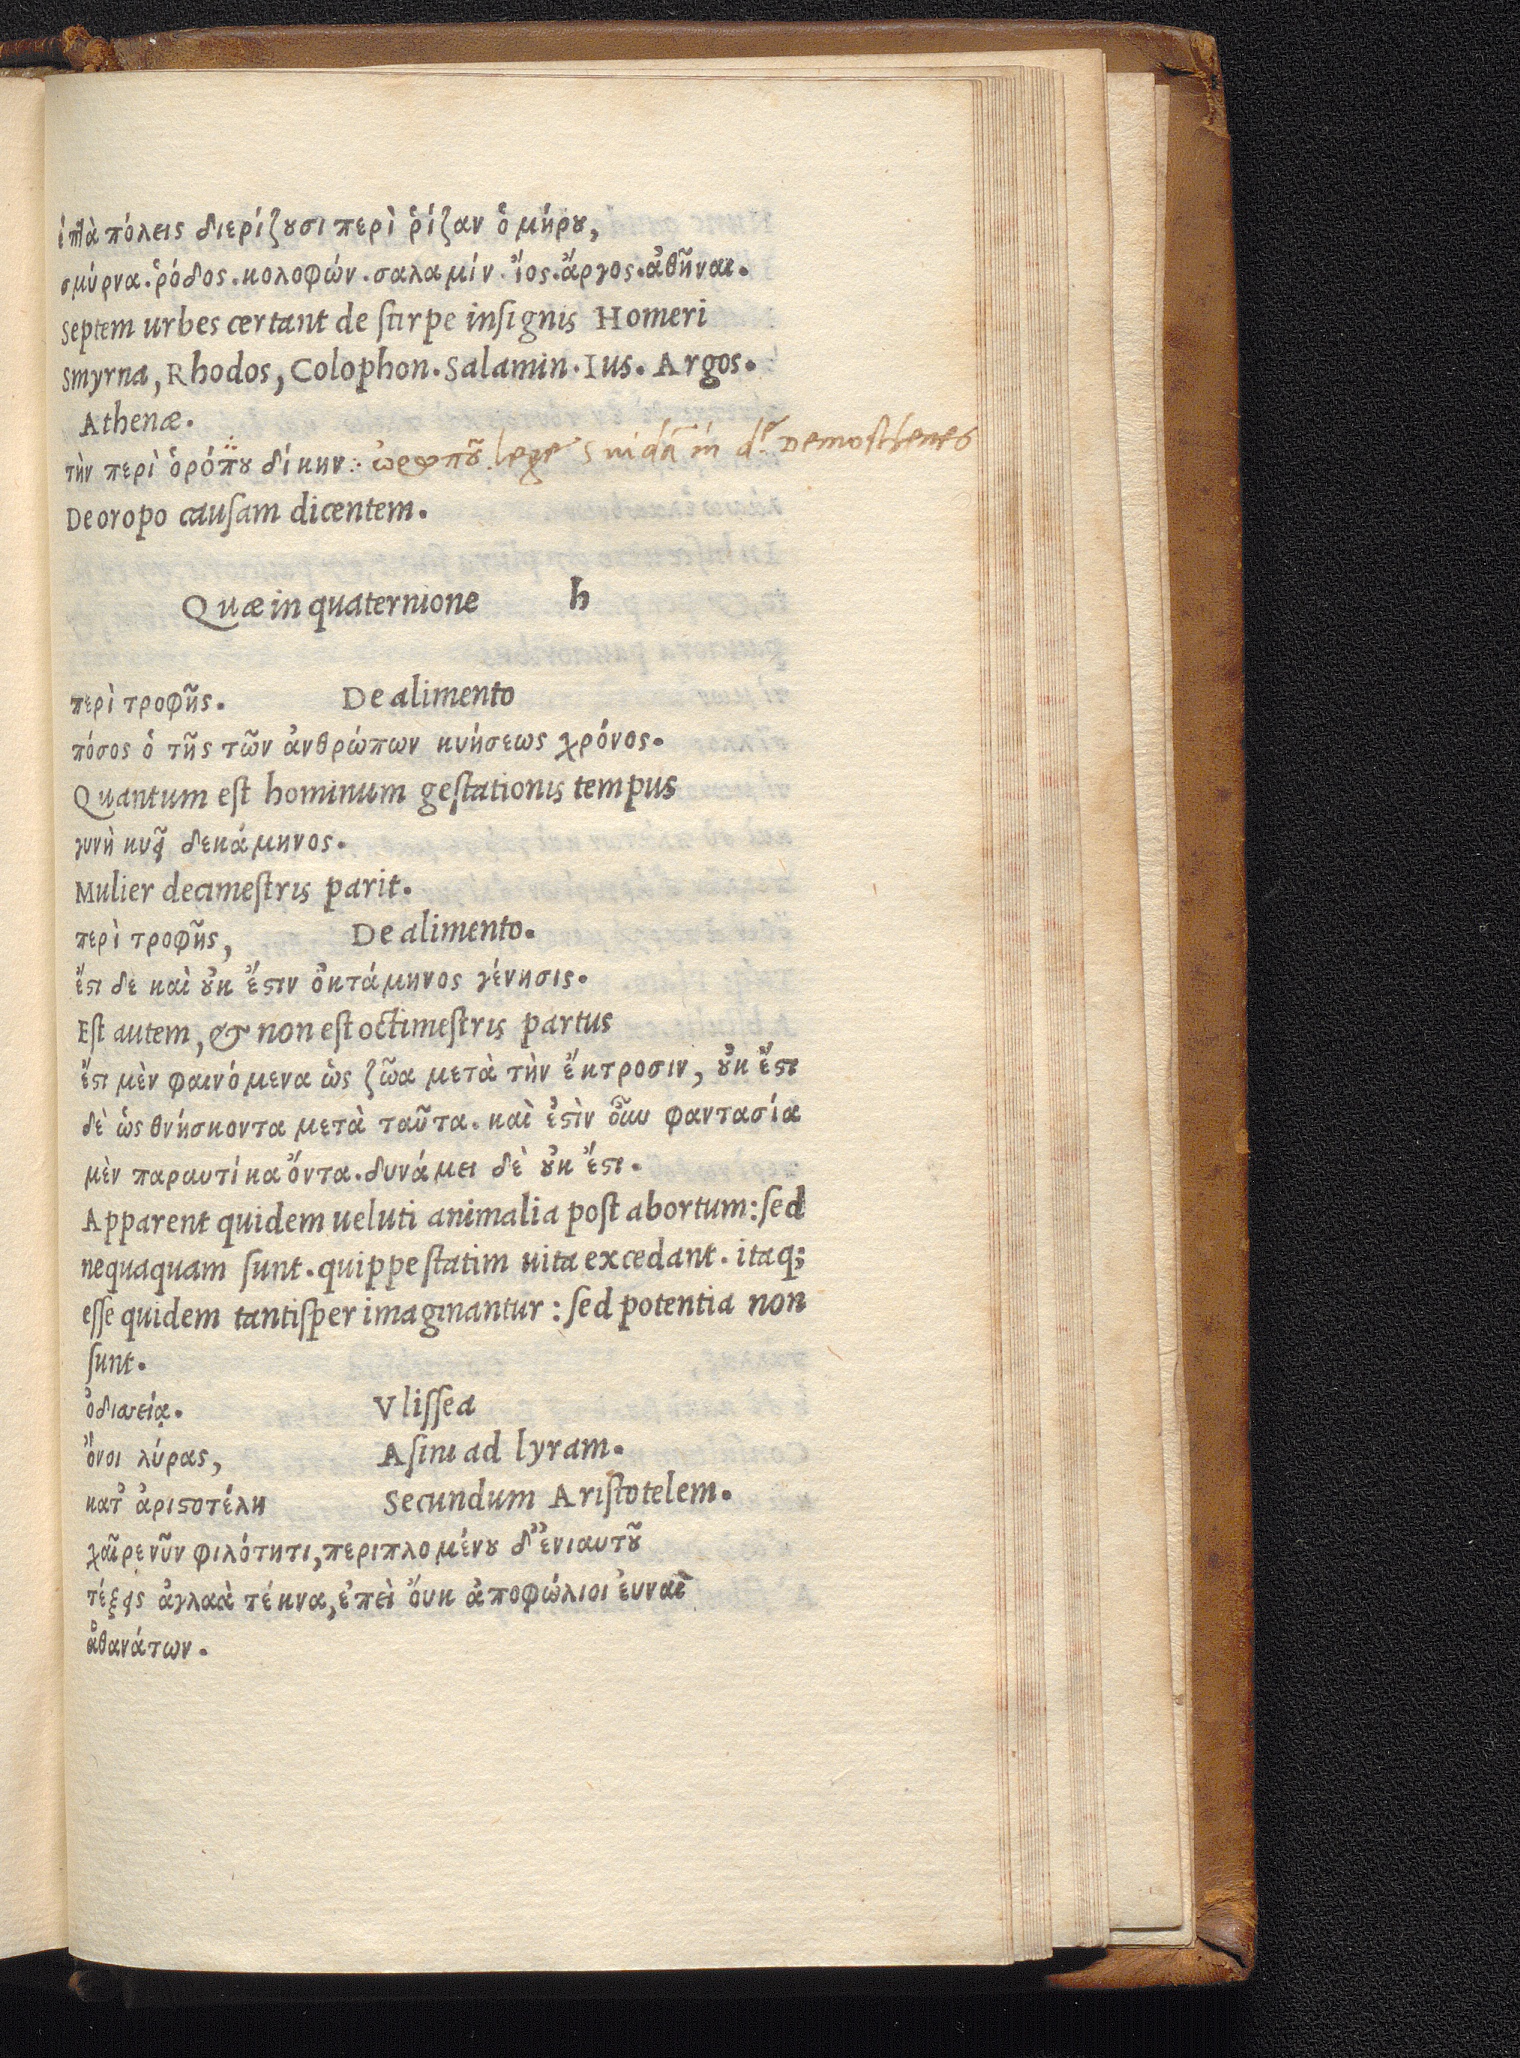 ἑπτὰ πόλεις διερίζουσι περὶ ῥίζαν ὁ μήρου,
σμύρνα. ῥόδος. κολοφών. σαλαμίν. ἴος. ἄργος. ἀθῆναι.
Septem urbes certant de ſtirpe inſignis Homeri
Smyrna, Rhodos, Colophon. Salamin. Ius. Argos.
Athenæ.
τὴν περὶ ὁρόπου δίκην : ὠρωποῦ. lege Suidā in dc̄. Demosthenes
De oropo cauſam dicentem.
Quæ in quaternione h
περὶ τροφῆς. De alimento
πόσος ὁ τῆς τῶν ἀνθρώπων κυήσεως χρόνος.
Quantum eſt hominum geſtationis tempus
γυνὴ κυεῖ δεκάμηνος.
Mulier decimeſtris parit.
περὶ τροφῆς, De alimento.
ἔστι δε καὶ οὐκ ἔστιν ὀκτάμηνος γένησις.
Eſt autem, & non eſt octimeſtris partus
ἔστι μὲν φαινόμενα ὡς ζῶα μετὰ τὴν ἔκτροσιν, οὐκ ἔστι
δὲ ὡς θνήσκοντα μετὰ ταῦτα. καὶ ἐστὶν οὖν φαντασία
μὲν παραυτίκα ὄντα. δυνάμει δὲ οὐκ ἔστι.
Apparent quidem ueluti animalia poſt abortum: ſed
nequaquam ſunt. quippe ſtatim uita excedant. itaq;
eſſe quidem tantiſper imaginantur : ſed potentia non
ſunt.
ὀδισσείᾳ. Vliſſea
ὄνοι λύρας, Aſini ad lyram.
κατ' ἀριστοτέλη Secundum Ariſtotelem.
χαῖρε νῦν φιλότητι, περιπλομένου δ' ἐνιαυτοῦ
τέξεις ἀγλαὰ τέκνα, ἐπεὶ ὄυκ ἀποφώλιοι ἐυναὶ
ἀθανάτων.